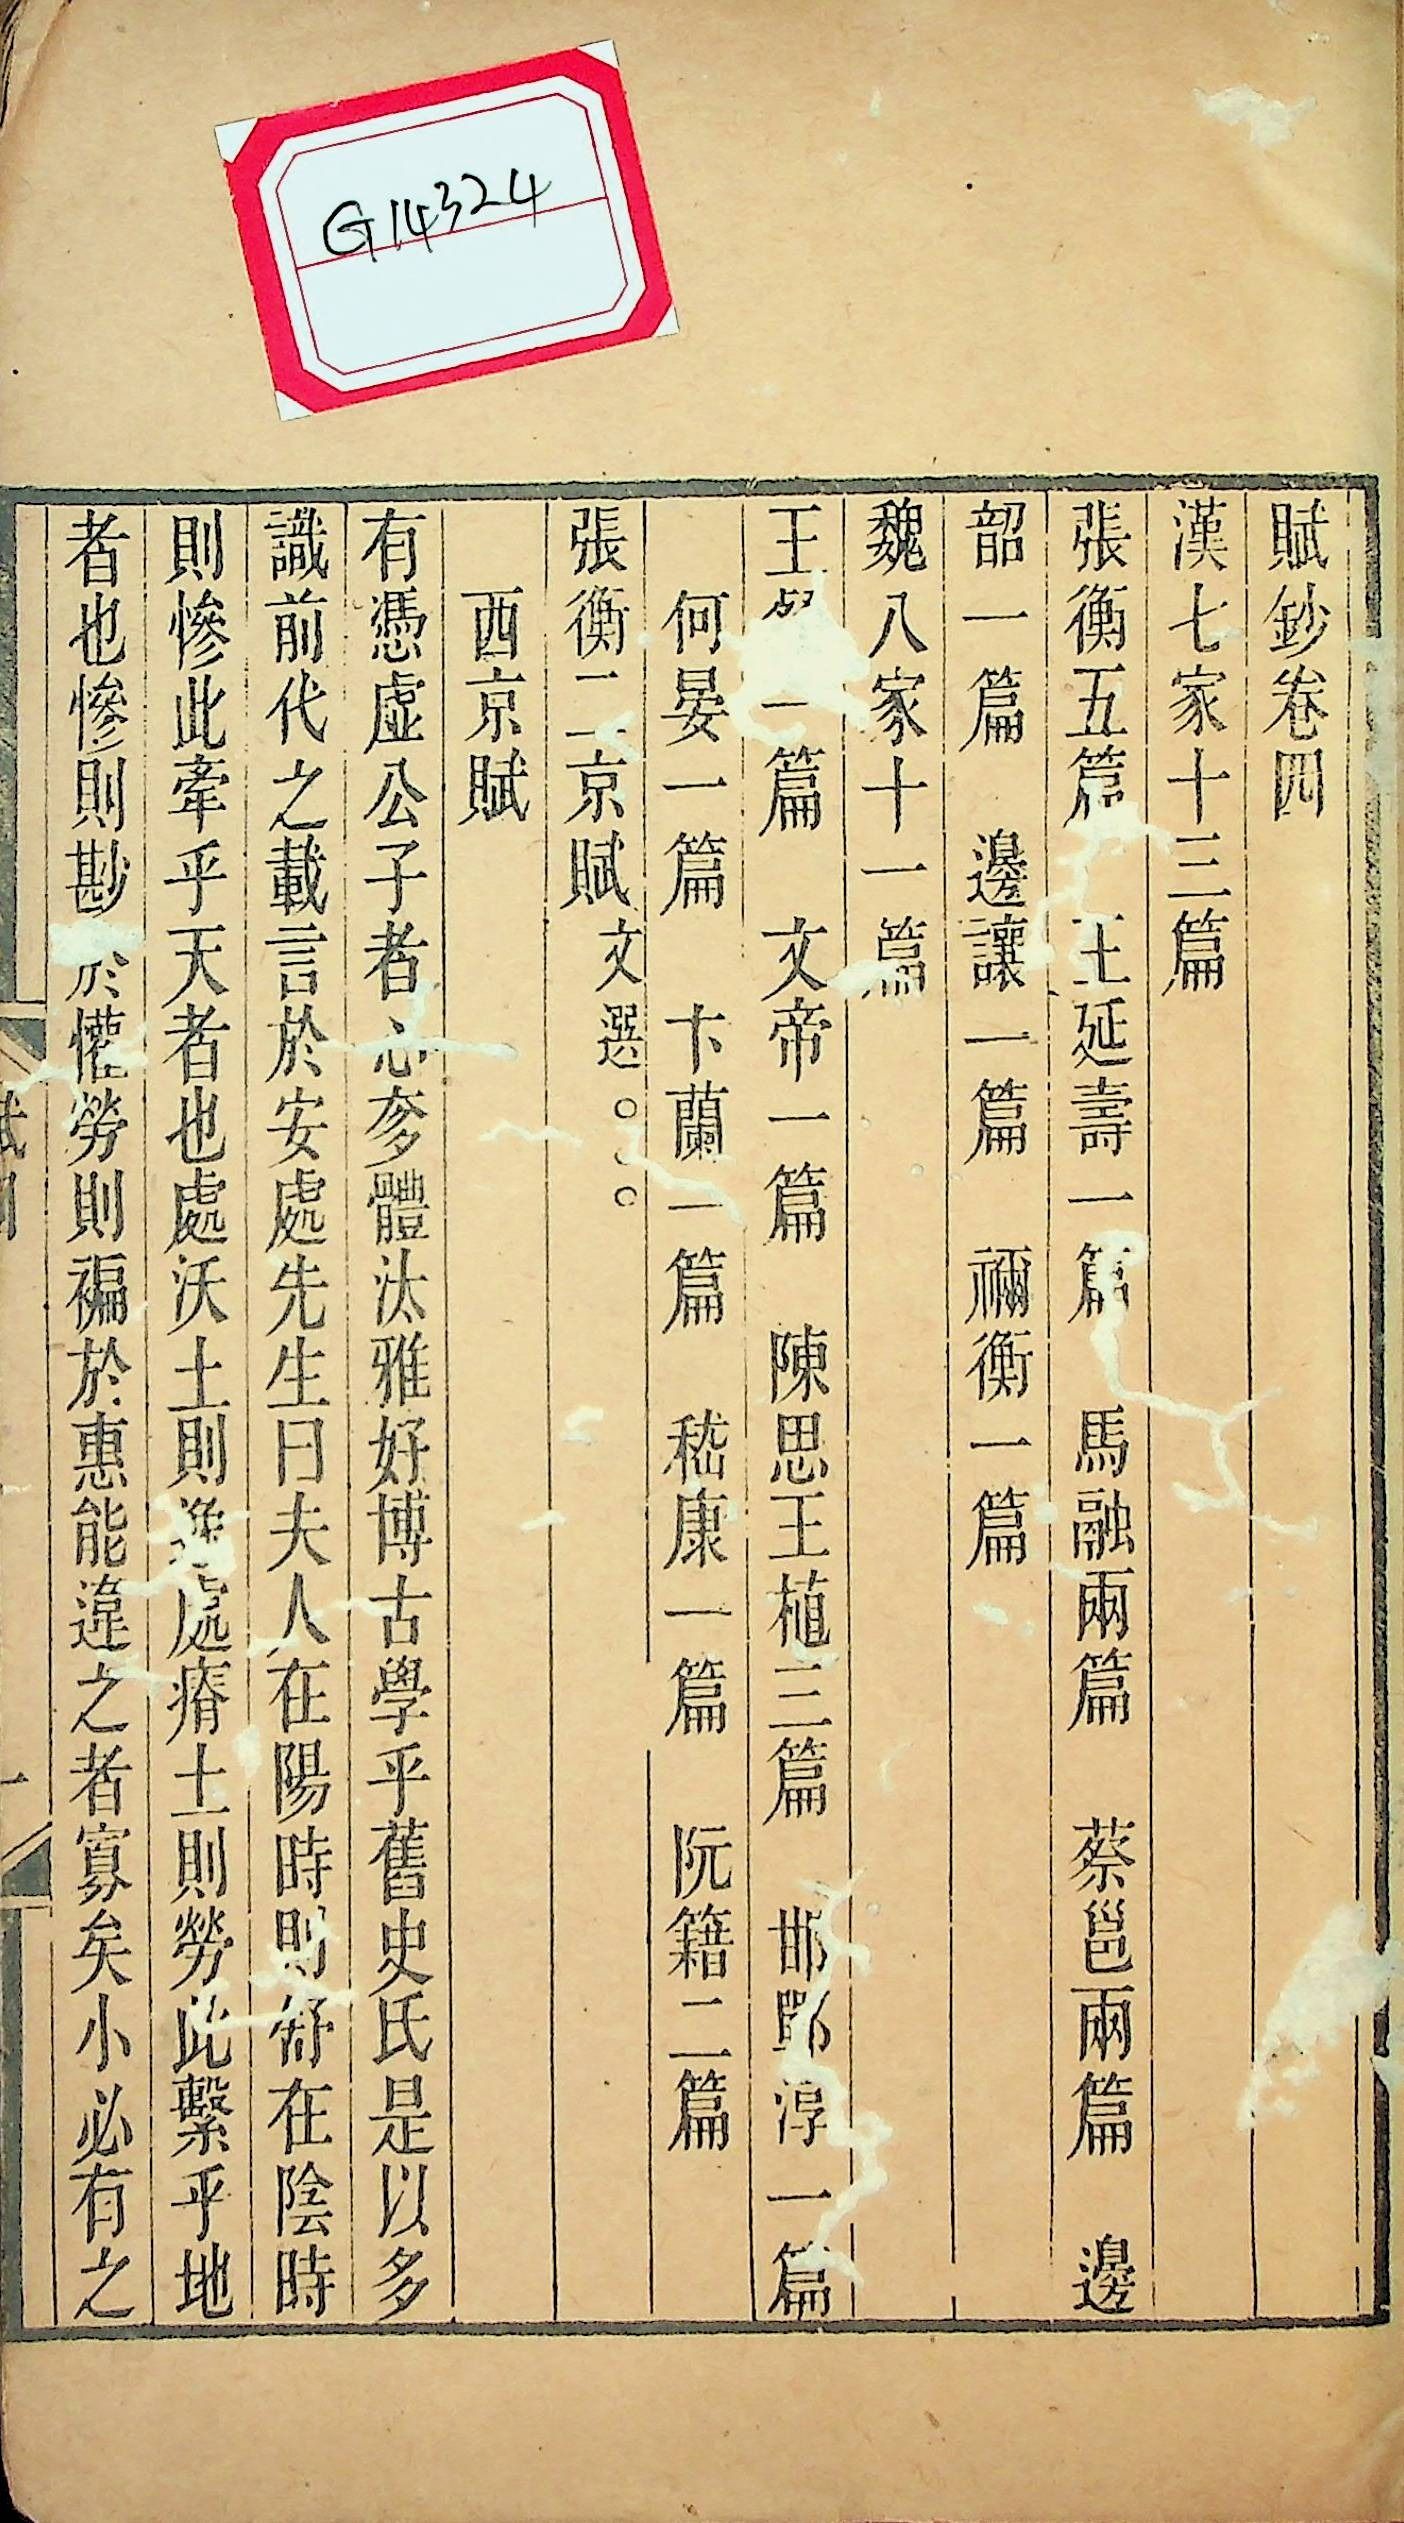 G14324
賦鈔卷四
漢七家十三篇
張衡五篇 王延壽一篇 馬融兩篇 蔡邕兩篇 邊
韶一篇 邊讓一篇 禰衡一篇
魏八家十一篇
王粲一篇 文帝一篇 陳思王植三篇 邯鄲淳一篇
何晏一篇 卞蘭一篇 嵇康一篇 阮籍二篇
張衡二京賦 文選○○○
西京賦
有憑虛公子者心奓體忲雅好博古學乎舊史氏是以多
識前代之載言於安處先生曰夫人在陽時則舒在陰時
則慘此牽乎天者也處沃土則逸處瘠土則勞此繫乎地
者也慘則尠於懽勞則褊於惠能違之者寡矣小必有之
一